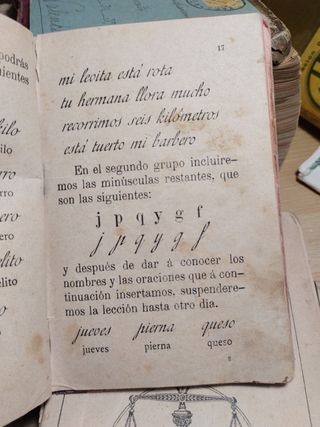 podrás
uientes
kilo
ilo
rro
ero
ero
elito
elito
17
mi levita está rota
tu hermana llora mucho
recorrimos seis kilómetros
está tuerto mi barbero
En el segundo grupo incluire-
mos las minúsculas restantes, que
son las siguientes:
j p q y g f
j p q y g f
y después de dar á conocer los
nombres y las oraciones que á con-
tinuación insertamos, suspendere-
mos la lección hasta otro dia.
jueves pierna queso
jueves pierna queso